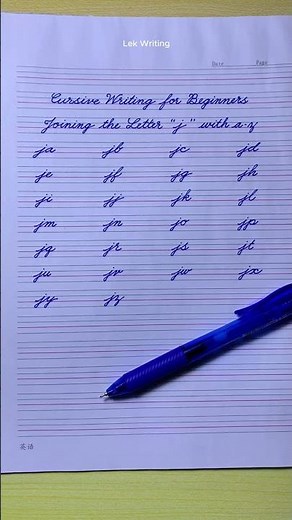 Lek Writing
Date Page
Cursive Writing for Beginners
Joining the Letter "j" with a-z
ja jb jc jd
je jf jg jh
ji jj jk jl
jm jn jo jp
jq jr js jt
ju jv jw jx
jy jz
英语